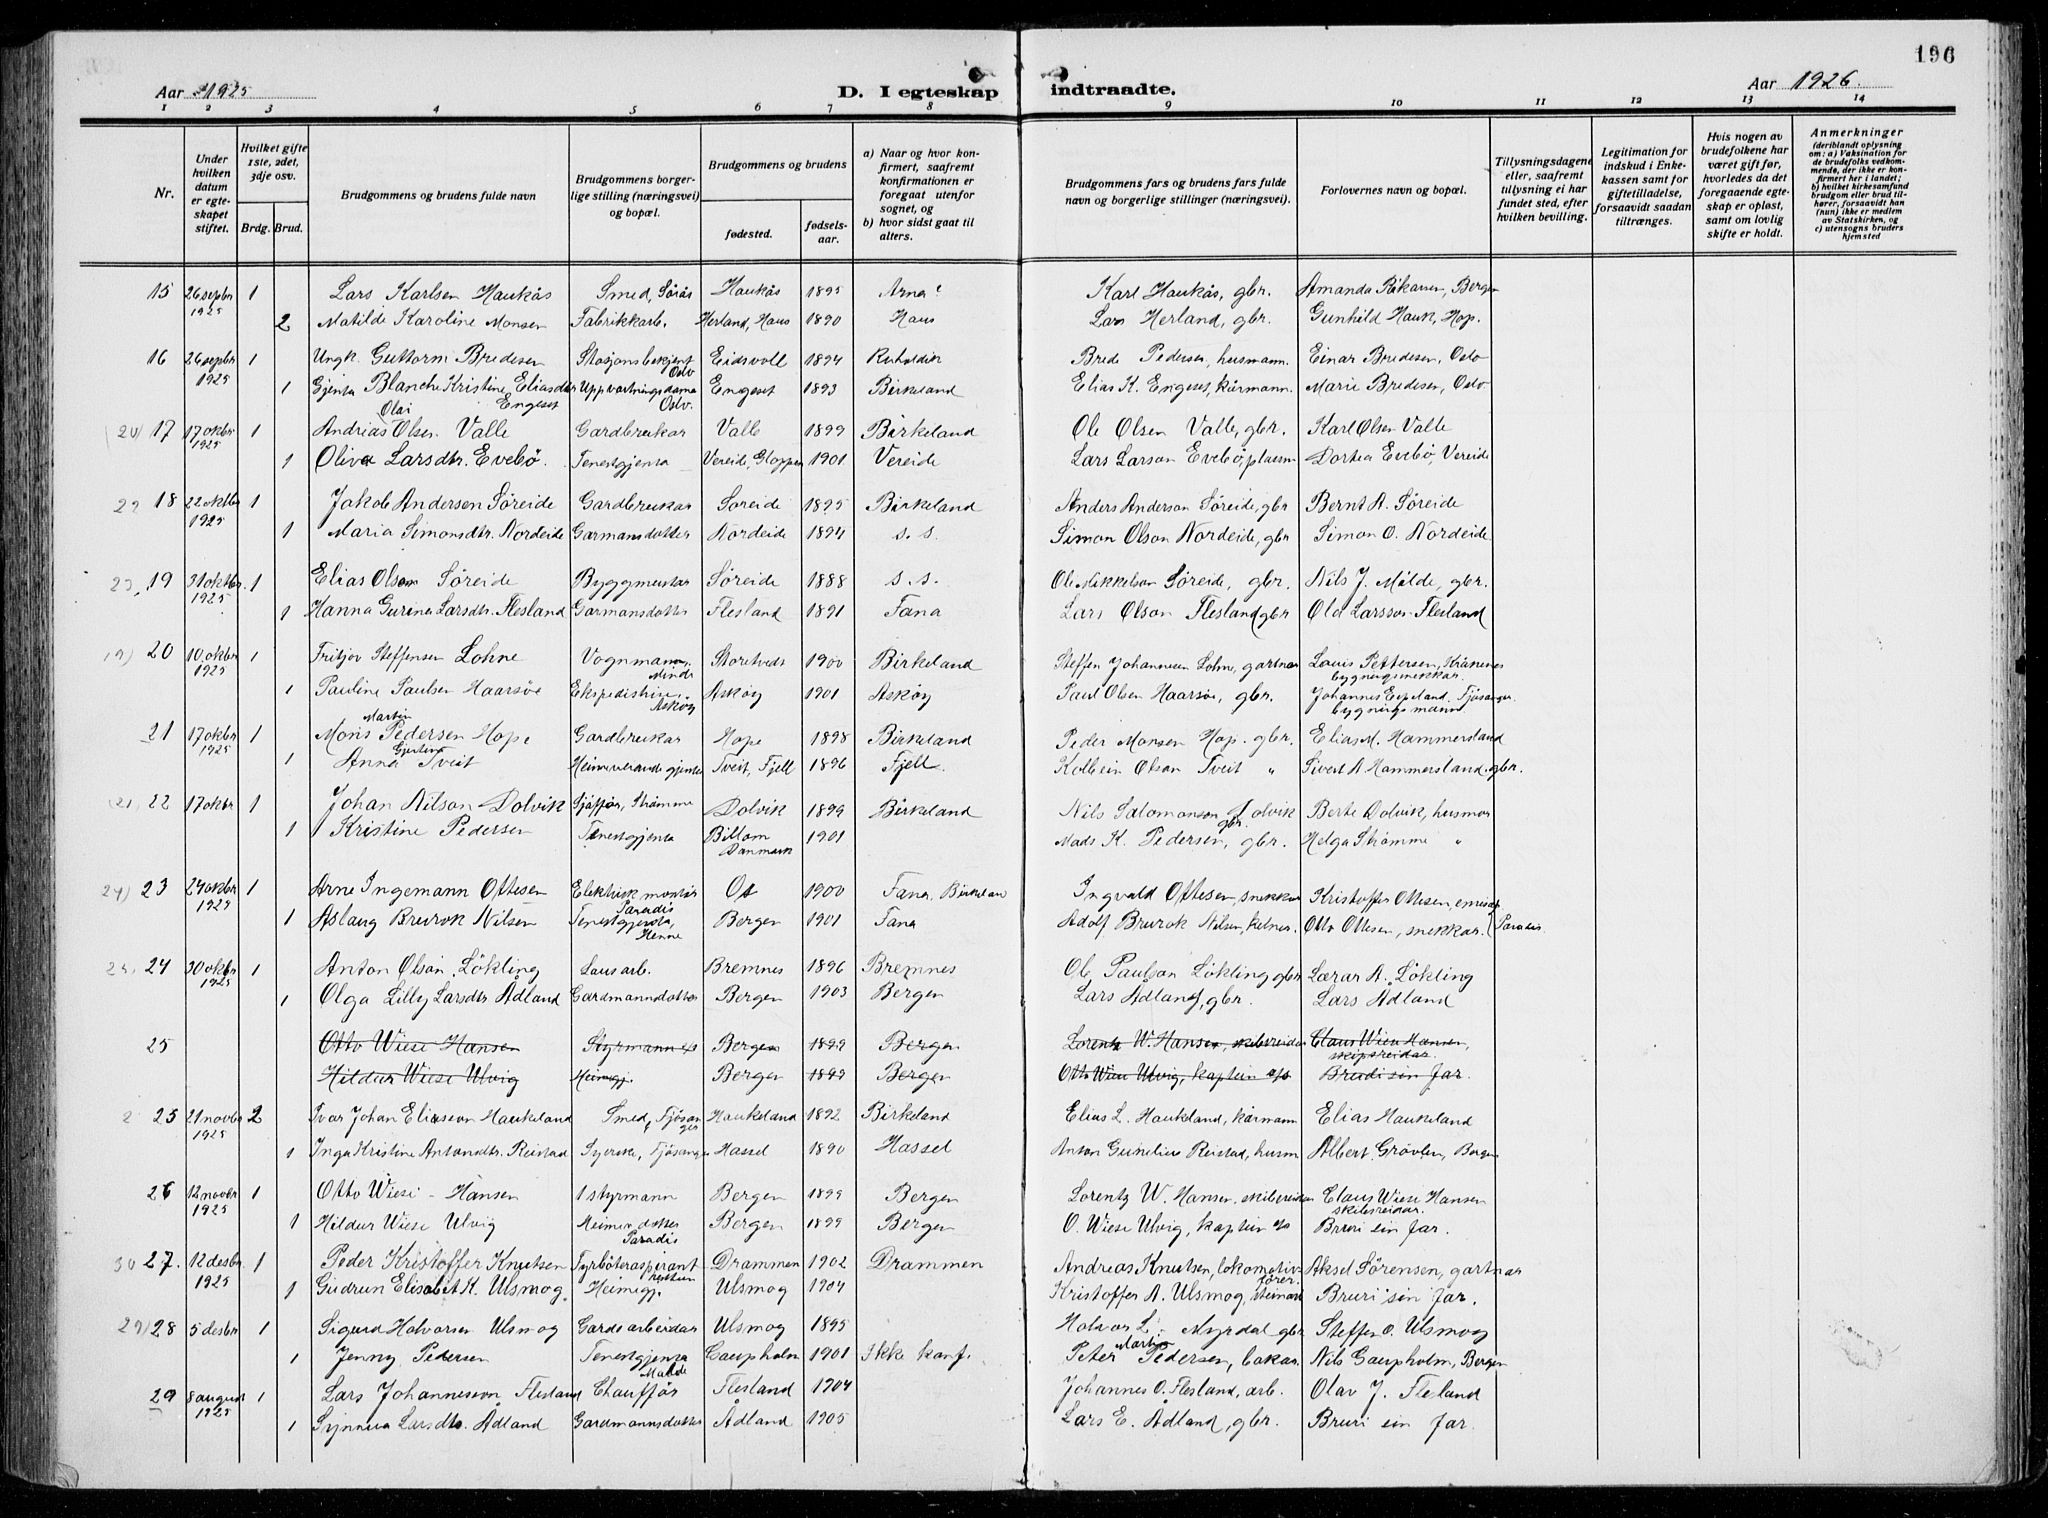 196
Aar 1925 D. I egteskap indtraadte. Aar 1926
1 2 3 4 5 6 7 8 9 10 11 12 13 14
Nr.
Under hvilken datum er egteskapet stiftet.
Hvilket gifte 1ste, 2det, 3dje osv.
Brdg. Brud.
Brudgommens og brudens fulde navn
Brudgommens borgerlige stilling (næringsvei) og bopæl.
Brudgommens og brudens
fødested.
fødselsaar.
a) Naar og hvor konfirmert, saafremt konfirmationen er foregaat utenfor sognet, og b) hvor sidst gaat til alters.
Brudgommens fars og brudens fars fulde navn og borgerlige stillinger (næringsvei).
Forlovernes navn og bopæl.
Tillysningsdagene eller, saafremt tillysning ei har fundet sted, efter hvilken bevilling.
Legitimation for indskud i Enkekassen samt for giftetilladelse, forsaavidt saadan tiltrænges.
Hvis nogen av brudefolkene har været gift før, hvorledes da det foregaaende egteskap er opløst, samt om lovlig skifte er holdt.
Anmerkninger (deriblandt oplysning om: a) Vaksination for de brudefolks vedkommende, der ikke er konfirmert her i landet; b) hvilket kirkesamfund brudgom eller brud tilhører, forsaavidt han (hun) ikke er medlem av Statskirken, og c) utensogns bruders hjemsted
15 26 septbr 1925 1 Lars Karlsen Haukås Smed, Sørås Haukås 1895 Arna Karl Haukås, gbr. Amanda Rikarsen, Bergen
2 Matilde Karoline Monsen Fabrikkarb. Herland, Haus 1890 Haus Lars Herland, gbr. Gunhild Hauk, Hop.
16 26 septbr 1925 1 Ungk. Guttorm Bredesen Stasjonsbetjent Oslo Eidsvoll 1894 Brede Pedersen, husmann. Einar Bredesen, Oslo
1 Gjenta Blanche Kristine Eliasdtr Engeset Uppvartningsdame Oslo. Engeset 1893 Birkeland Elias K. Engeset, kårmann. Marie Bredesen, Oslo
(20) 17 17 oktbr 1925 1 Andrias Olai Olsen Valle Gardbrukar Valle 1899 Birkeland Ole Olsen Valle, gbr. Karl Olsen Valle
1 Oliva Larsdtr. Evebø. Tenestgjenta Vereide, Gloppen 1901 Vereide Lars Larson Evebø, plassm Dortea Evebø, Vereide
22 18 22 oktbr 1925 1 Jakob Andersen Søreide Gardbrukar Søreide 1895 Birkeland Anders Anderson Søreide, gbr Bernt A. Søreide
1 Maria Simonsdtr. Nordeide Garmansdotter Nordeide 1894 s. s. Simon Olson Nordeide, gbr Simon O. Nordeide
23. 19 31 oktbr. 1925 1 Elias Olson Søreide Byggmestar Søreide 1888 s. s. Ole Mikkelson Søreide, gbr. Nils J. Milde, gbr.
1 Hanna Gurina Larsdtr. Flesland Garmansdotter Flesland 1891 Fana Lars Olson Flesland gbr Ola Larsson Flesland
19) 20 10 oktbr 1925 1 Fritjov Steffensen Lohne Vognmann, Minde Storetveit 1900 Birkeland Steffen Johannesen Lohne, gartnar Louis Pettersen, Kråkenes bygningssnekkar.
1 Pauline Paulsen Haarsøe Ekspeditrise. Askøy Askøy 1901 Askøy Paul Olsen Haarsøe, gbr. Johannes Espeland, Fjøsanger bygningsmann
21 17 oktbr 1925 1 Mons Martin Pedersen Hope Gardbrukar Hope 1898 Birkeland Peder Monsen Hop. gbr. Elias M. Hammersland
1 Anna Gjertine Tveit Heimeverande gjenta Tveit, Fjell 1896 Fjell. Kolbein Olson Tveit " Sivert A. Hammersland. gbr.
(21) 22 17 oktbr 1 Johan Nilson Dolvik Sjåffør, Strømme Dolvik 1899 Birkeland Nils Salomonson Dolvik gbr. Berte Dolvik, husmor
1 Kristine Pedersen Tenestgjenta Billom Danmark 1901 Mads K. Pedersen, gbr. Helga Strømme "
24) 23 24 oktbr 1925 1 Arne Ingemann Ottesen Elektrisk montør Paradis Os 1900 Fana, Birkeland Ingvald Ottesen, snekkar Kristoffer Ottesen, emisær
1 Aslaug Brurok Nilsen Tenestgjenta, Bergen 1901 Fana Adolf Brurok Nilsen, kelner. Otto Ottesen, snekkar. (Paradis.
25. 24 30 oktbr 1925 1 Anton Olsen Løkling Lausarb. Bremnes 1896 Bremnes Ole Paulson Løkling gbr Lærar A. Løkling
1 Olga Lilly Larsdtr Ådland Gardmannsdotter Bergen 1903 Bergen Lars Ådland, gbr. Lars Ådland
25 Otto Wiese Hansen Styrmann Bergen 1899 Bergen. Lorentz W. Hansen, skibsreidar Claus Wiese Hansen, skipsreidar.
Hildur Wiese Ulvig Heimegj. Bergen 1899 Bergen Otto Wiese Ulvig, kaptein Brudi sin far.
2 25 21 novbr 1925 2 Ivar Johan Eliasson Haukeland Smed, Fjøsanger Haukeland 1892 Birkeland Elias L. Haukeland, kårmann Elias Haukeland
1 Inga Kristine Antondtr. Reistad Syerske, Fjøsanger Hassel 1890 Hassel Anton Gunelius Reistad, husm Albert Grøvlen, Bergen
26 12 novbr 1925 1 Otto Wiese - Hansen 1 styrmann Bergen 1899 Bergen Lorentz W. Hansen, skibsreidar Claus Wiese Hansen skibsreidar.
1 Hildur Wiese Ulvig Heimedotter Paradis Bergen 1899 Bergen O. Wiese Ulvig, kaptein Bruri sin far.
30 27. 12 desbr. 1925 1 Peder Kristoffer Knutsen Fyrbøteraspirant Drammen 1902 Drammen Andreas Knutsen, lokomotivfører. Aksel Sørensen, gartnar
1 Gudrun Elisabet K. Ulsmog. Heimegj. Nestun Ulsmog 1904 Kristoffer A. Ulsmog, steinarb Bruri sin far.
29) 28 5 desbr 1 Sigurd Halvorsen Ulsmog Gardsarbeidar Ulsmog 1895 Halvor L. Myrdal gbr Steffen O. Ulsmog
1 Jenny Pedersen Tenestgjenta Gaupholm 1901 Ikke konf. Peter Martin Pedersen, bakar. Nils Gaupholm, Bergen
29 8 august 1925 1 Lars Johannesson Flesland Chauffør Milde Flesland 1904 Johannes O. Flesland, arb. Olav J. Flesland
1 Synnøva Larsdtr. Ådland Gardmannsdotter Ådland 1905 Lars E. Ådland, gbr. Bruri sin far